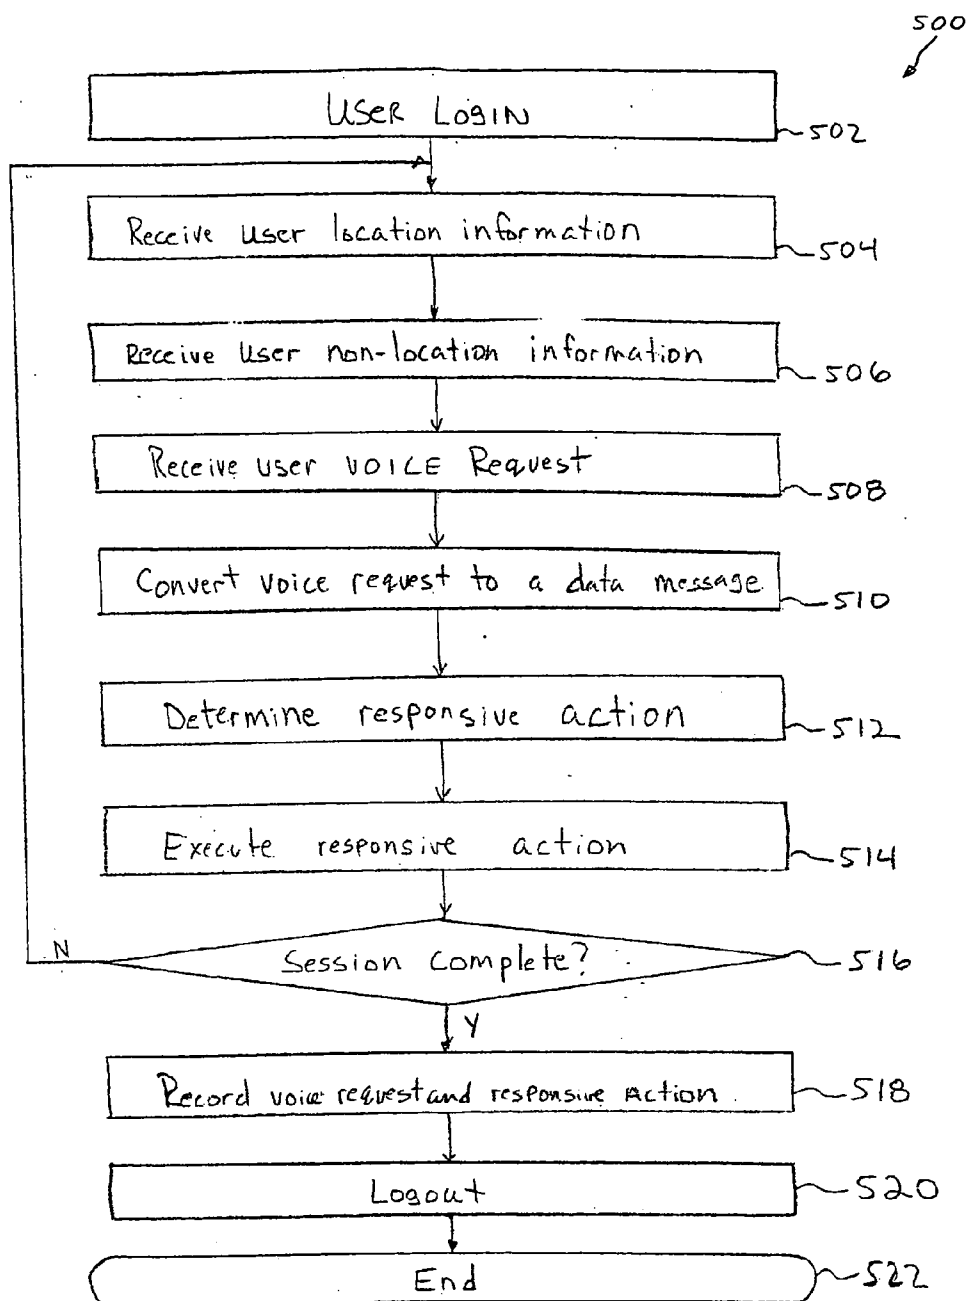 500
USER LOGIN
502
Receive user location information
504
Receive User non-location information
506
Receive user VOICE Request
508
Convert voice request to a data message
510
Determine responsive action
512
Execute responsive action
514
N
Session complete?
516
Y
Record voice request and responsive Action
518
Logout
520
End
522